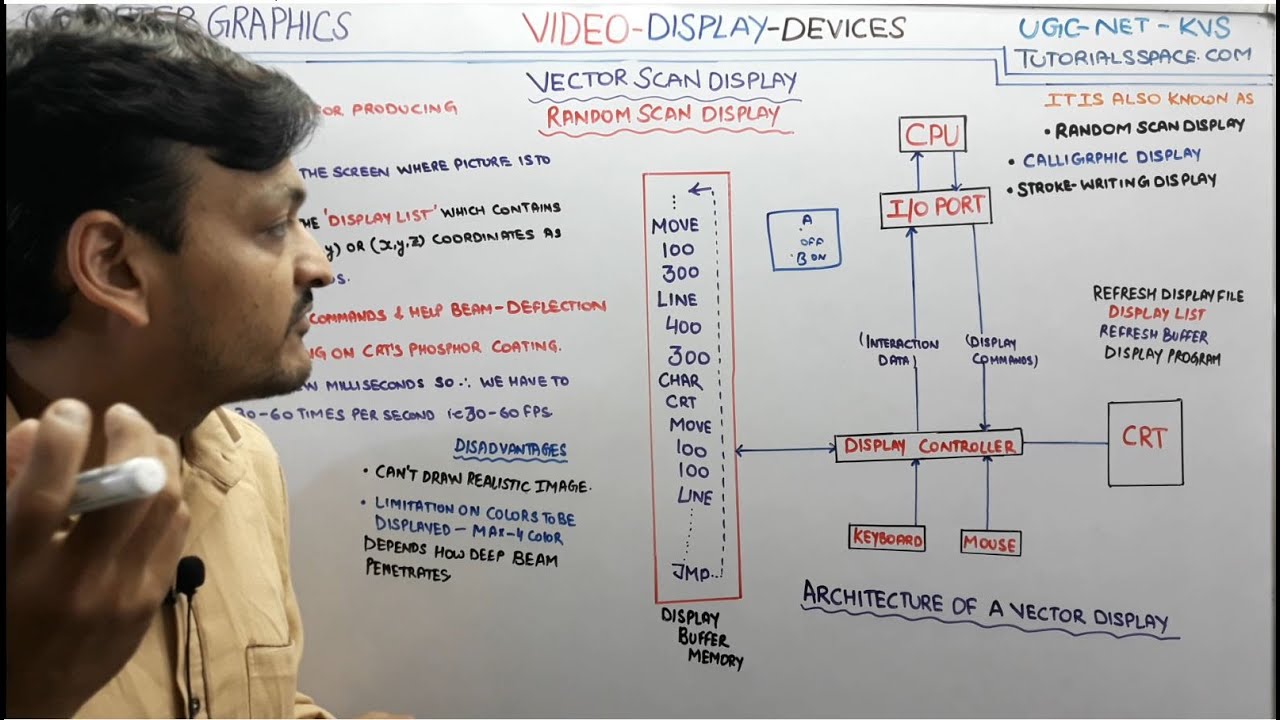 GRAPHICS
VIDEO-DISPLAY-DEVICES
UGC-NET-KVS
TUTORIALSSPACE.COM
VECTOR SCAN DISPLAY
RANDOM SCAN DISPLAY
FOR PRODUCING
THE SCREEN WHERE PICTURE IS TO
'DISPLAY LIST' WHICH CONTAINS
y) OR (x,y,z) COORDINATES AS
COMMANDS & HELP BEAM-DEFLECTION
ON CRT'S PHOSPHOR COATING.
MILLISECONDS SO ∴ WE HAVE TO
30-60 TIMES PER SECOND i.e 30-60 FPS.
DISADVANTAGES
• CAN'T DRAW REALISTIC IMAGE.
• LIMITATION ON COLORS TO BE
DISPLAYED - MAX-4 COLOR
DEPENDS HOW DEEP BEAM
PENETRATES
MOVE
100
300
LINE
400
300
CHAR
CRT
MOVE
100
100
LINE
JMP
DISPLAY
BUFFER
MEMORY
A
OFF
B ON
CPU
I/O PORT
(INTERACTION
DATA)
(DISPLAY
COMMANDS)
DISPLAY CONTROLLER
CRT
KEYBOARD
MOUSE
ARCHITECTURE OF A VECTOR DISPLAY
IT IS ALSO KNOWN AS
• RANDOM SCAN DISPLAY
• CALLIGRPHIC DISPLAY
• STROKE-WRITING DISPLAY
REFRESH DISPLAY FILE
DISPLAY LIST
REFRESH BUFFER
DISPLAY PROGRAM